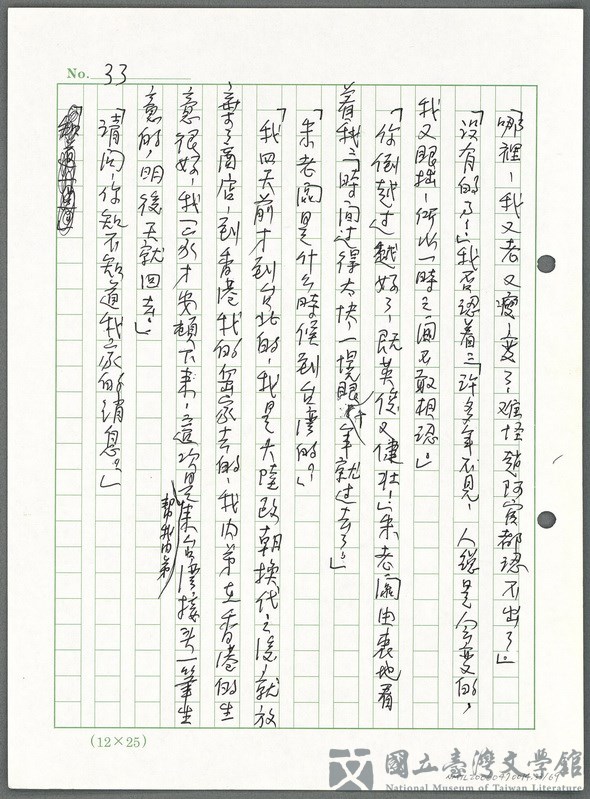 No. 33
「哪裡,我又老又瘦,變了,难怪趙阿賓都認不出了。」
「沒有的事!」我否認着:「許多年不見,人總是会变的,
我又眼拙,所以一時之间不敢相認。」
「你倒越过越好了,既英俊又健壮!」朱老闆由衷地看
着我:「時间过得太快,一愰眼,年就过去了。」
「朱老闆是什么時候到台灣的?」
「我四天前才到台北的,我是大陸改朝換代之後,就放
棄了商店,到香港我的岳家去的,我内弟在香港的生
意很好,我一家才安頓下来,這次是來台灣接头一筆生
幫我内弟
意的,明後天就回去。」
「請问,你知不知道我家的消息?」
(12×25)
國立臺灣文學館
National Museum of Taiwan Literature